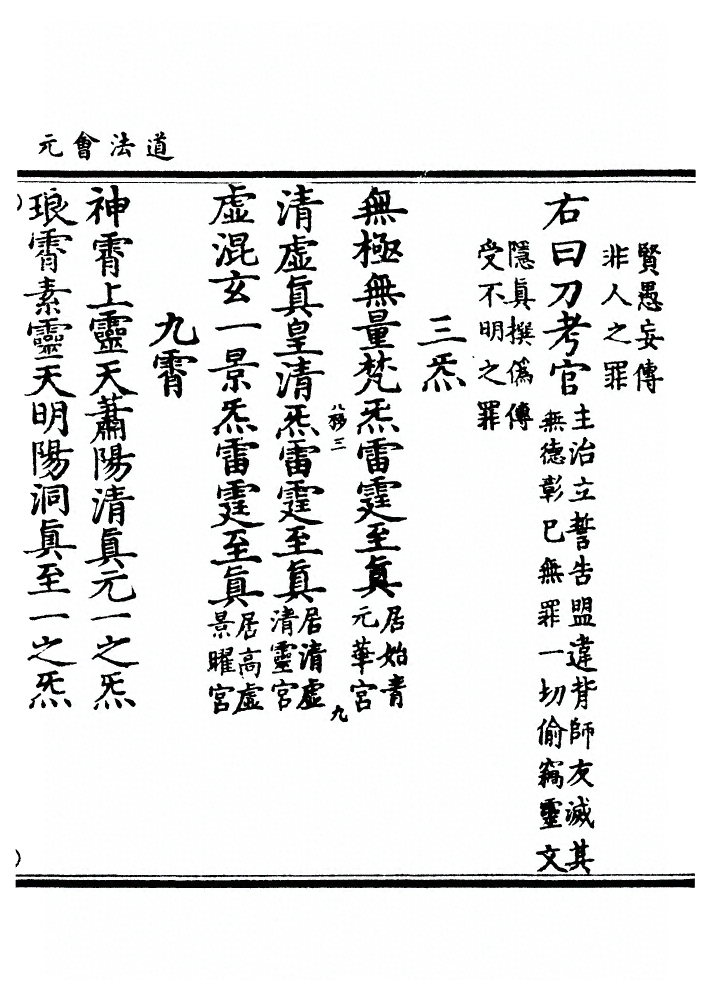 道法會元
賢愚妄傳
非人之罪
右曰刀考官
主治立誓告盟違背師友滅其
無德彰已無罪一切偷竊靈文
隱真撰偽傳
受不明之罪
三炁
無極無量梵炁雷霆至真
居始青
元華宮
八務三
九
清虛真皇清炁雷霆至真
居清虛
清靈宮
虛混玄一景炁雷霆至真
居高虛
景曜宮
九霄
神霄上靈天蕭陽清真元一之炁
琅霄素靈天明陽洞真至一之炁